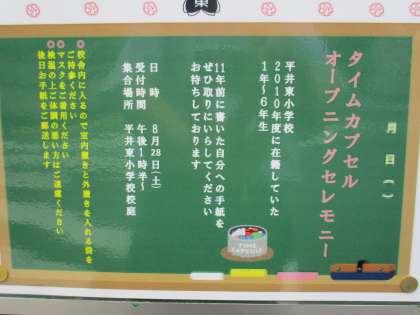 月 日( )
タイムカプセル
オープニングセレモニー
平井東小学校
2010年度に在籍していた
1年〜6年生
11年前に書いた自分への手紙を
ぜひ取りにいらしてください
お待ちしております
日時 8月28日(土)
受付時間 午後1時半〜
集合場所 平井東小学校校庭
◎校舎内に入るので室内履きと外履きを入れる袋を
ご持参ください
◎マスクをご着用ください
◎検温の上ご体調の悪い方はご遠慮ください
後日お手紙をご郵送します
TIME
CAPSULE